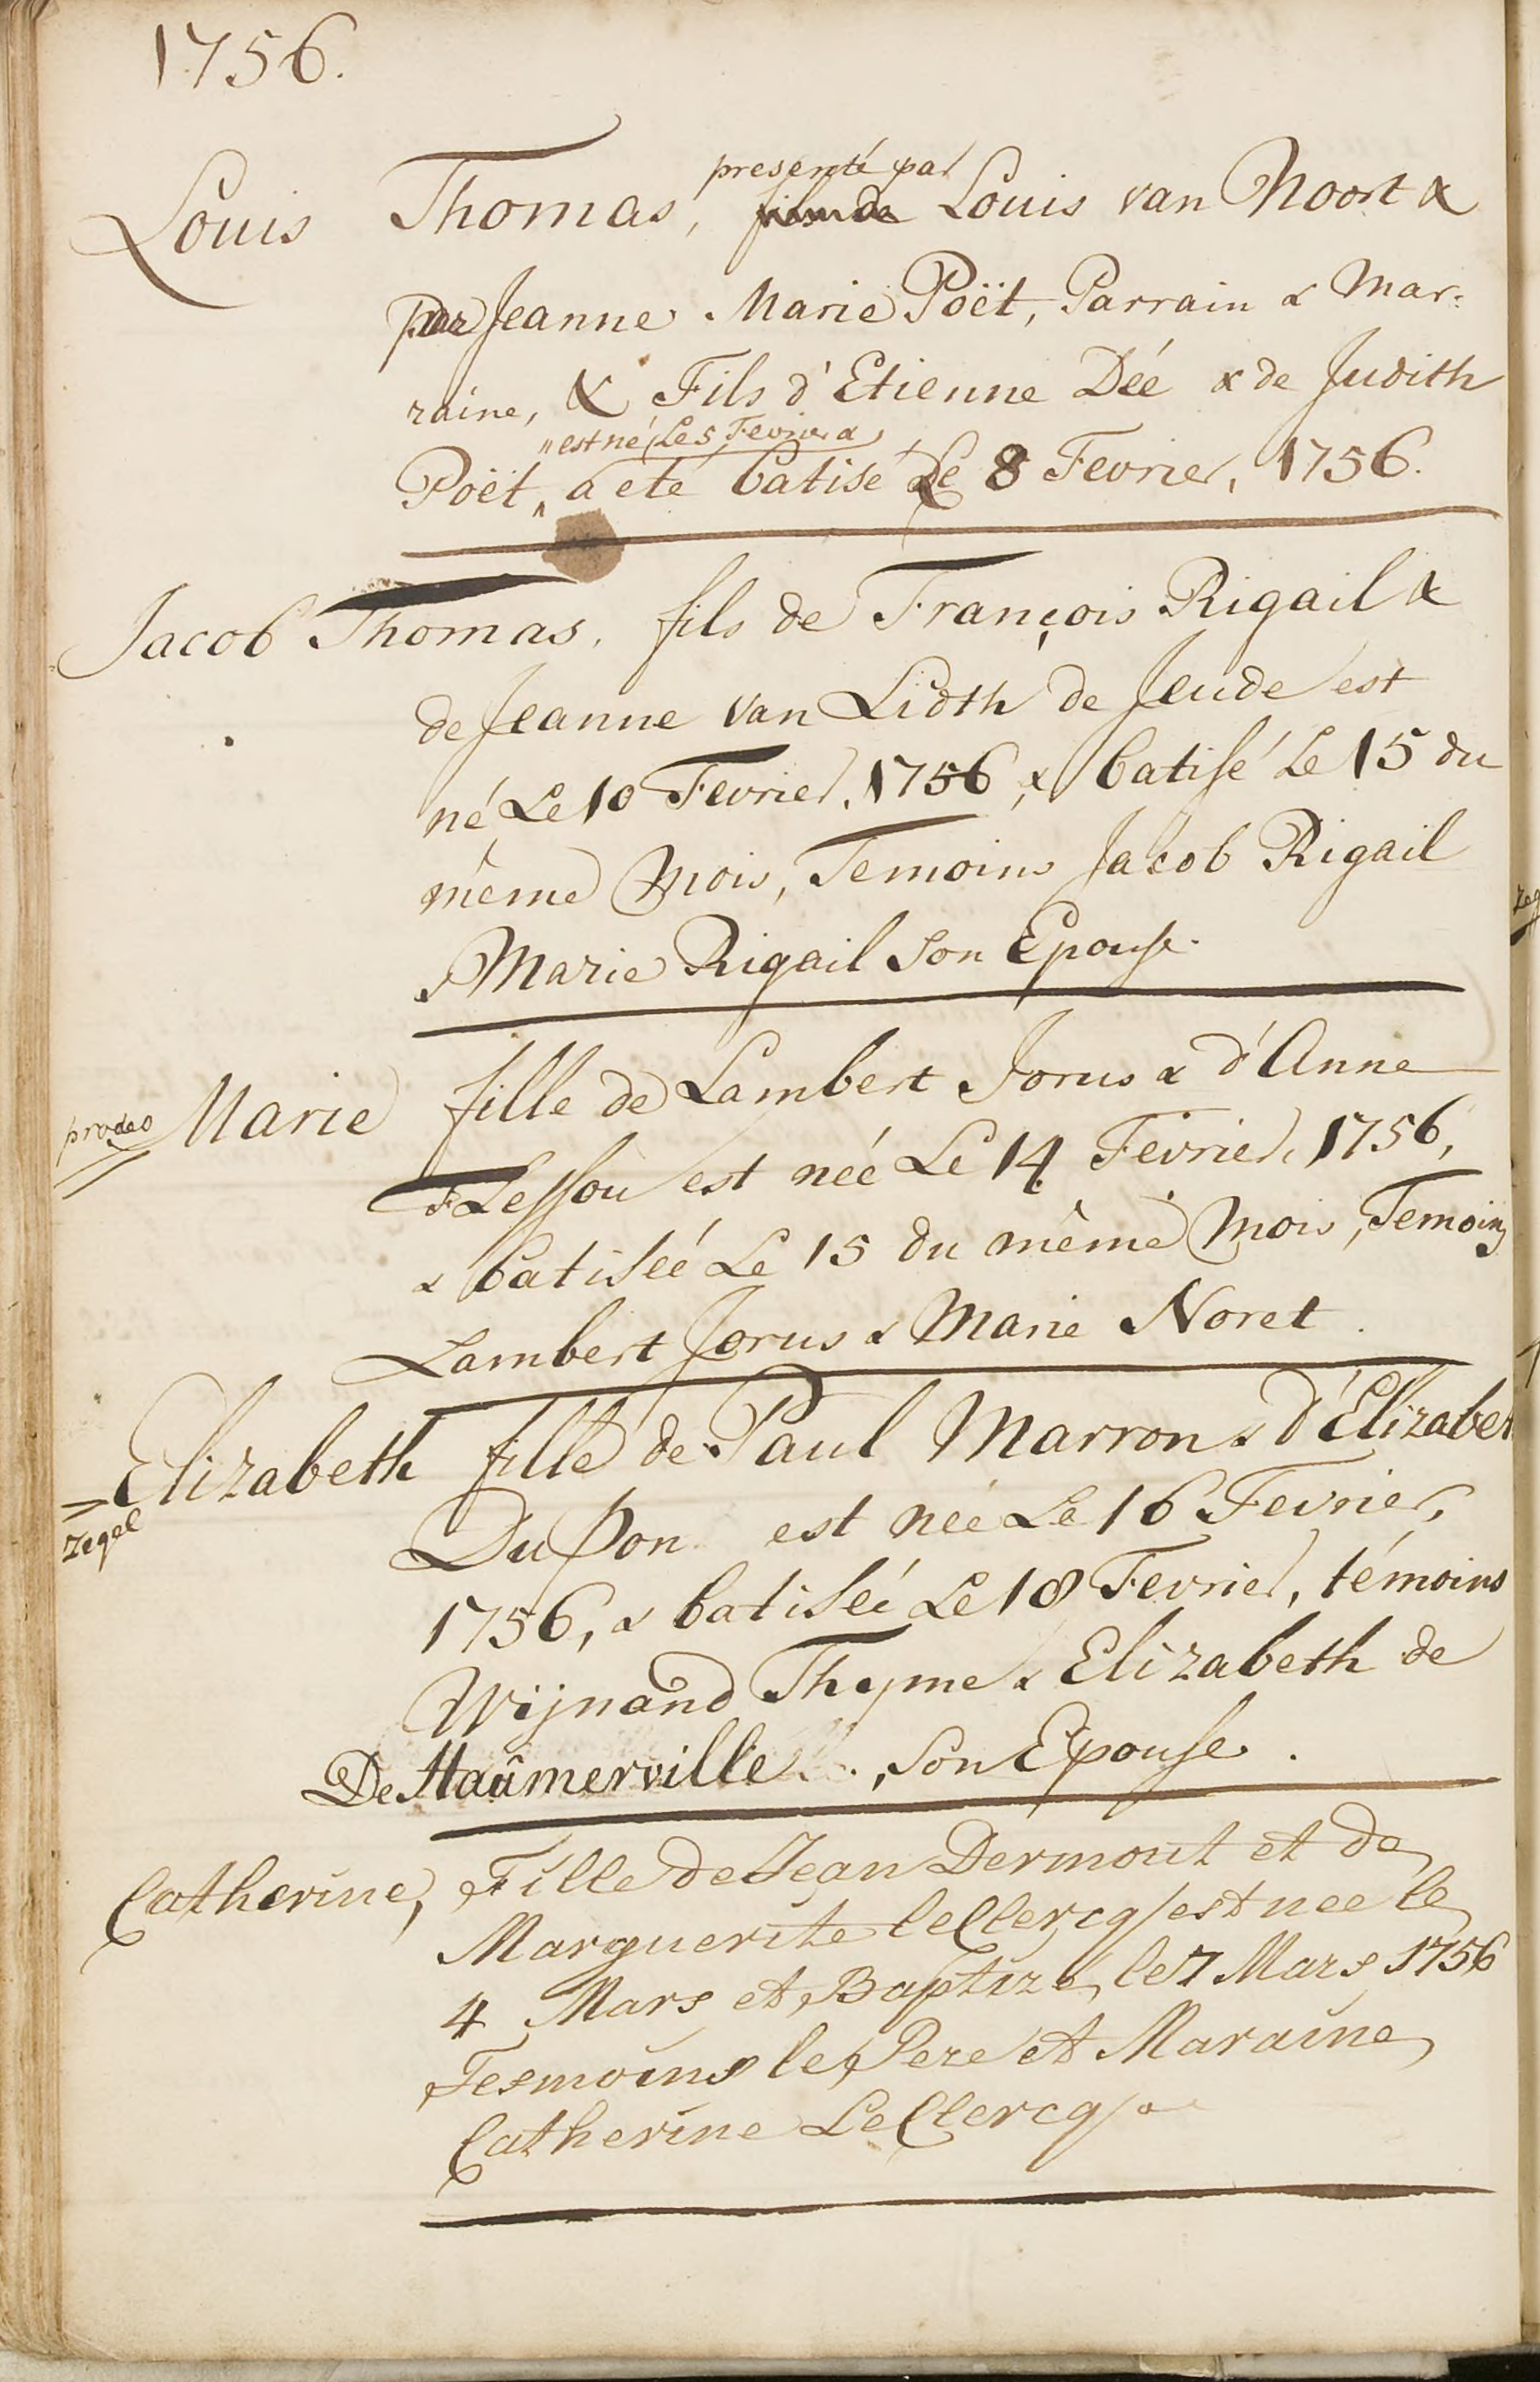 1756.
presenté par
Louis Thomas, fils de Louis van Noort &
par Jeanne Marie Poët, Parrain & Mar-
raine, & Fils d'Etienne Dée & de Judith
est né Le 5 Fevrier &
Poët, a eté batisé Le 8 Fevrier, 1756.
Jacob Thomas, fils de François Rigail &
de Jeanne van Lidth de Jeude est
né Le 10 Fevrier, 1756, & batisé Le 15 du
même Mois, Temoins Jacob Rigail
& Marie Rigail Son Epouse.
prodeo Marie fille de Lambert Jorus & d'Anne
Lessou est née Le 14 Fevrier, 1756,
& batisée Le 15 du même Mois, Temoins
Lambert Jorus & Marie Noret.
Elizabeth fille de Paul Marron & d'Elizabet
zegel
Du Pon est née Le 16 Fevrier,
1756, & batisée Le 18 Fevrier, témoins
Wijnand Thyme & Elizabeth de
De Haûmerville, Son Epouse.
Catherine, Fille de Jean Dermout et de
Marguerite leClercq est nee le
4 Mars et Baptizé le 7 Mars 1756
Tesmoins le Pere et Maraine
Catherine LeClercq